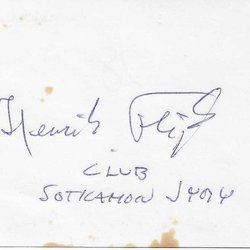 Henrik
CLUB
SOTKAMON JYMY